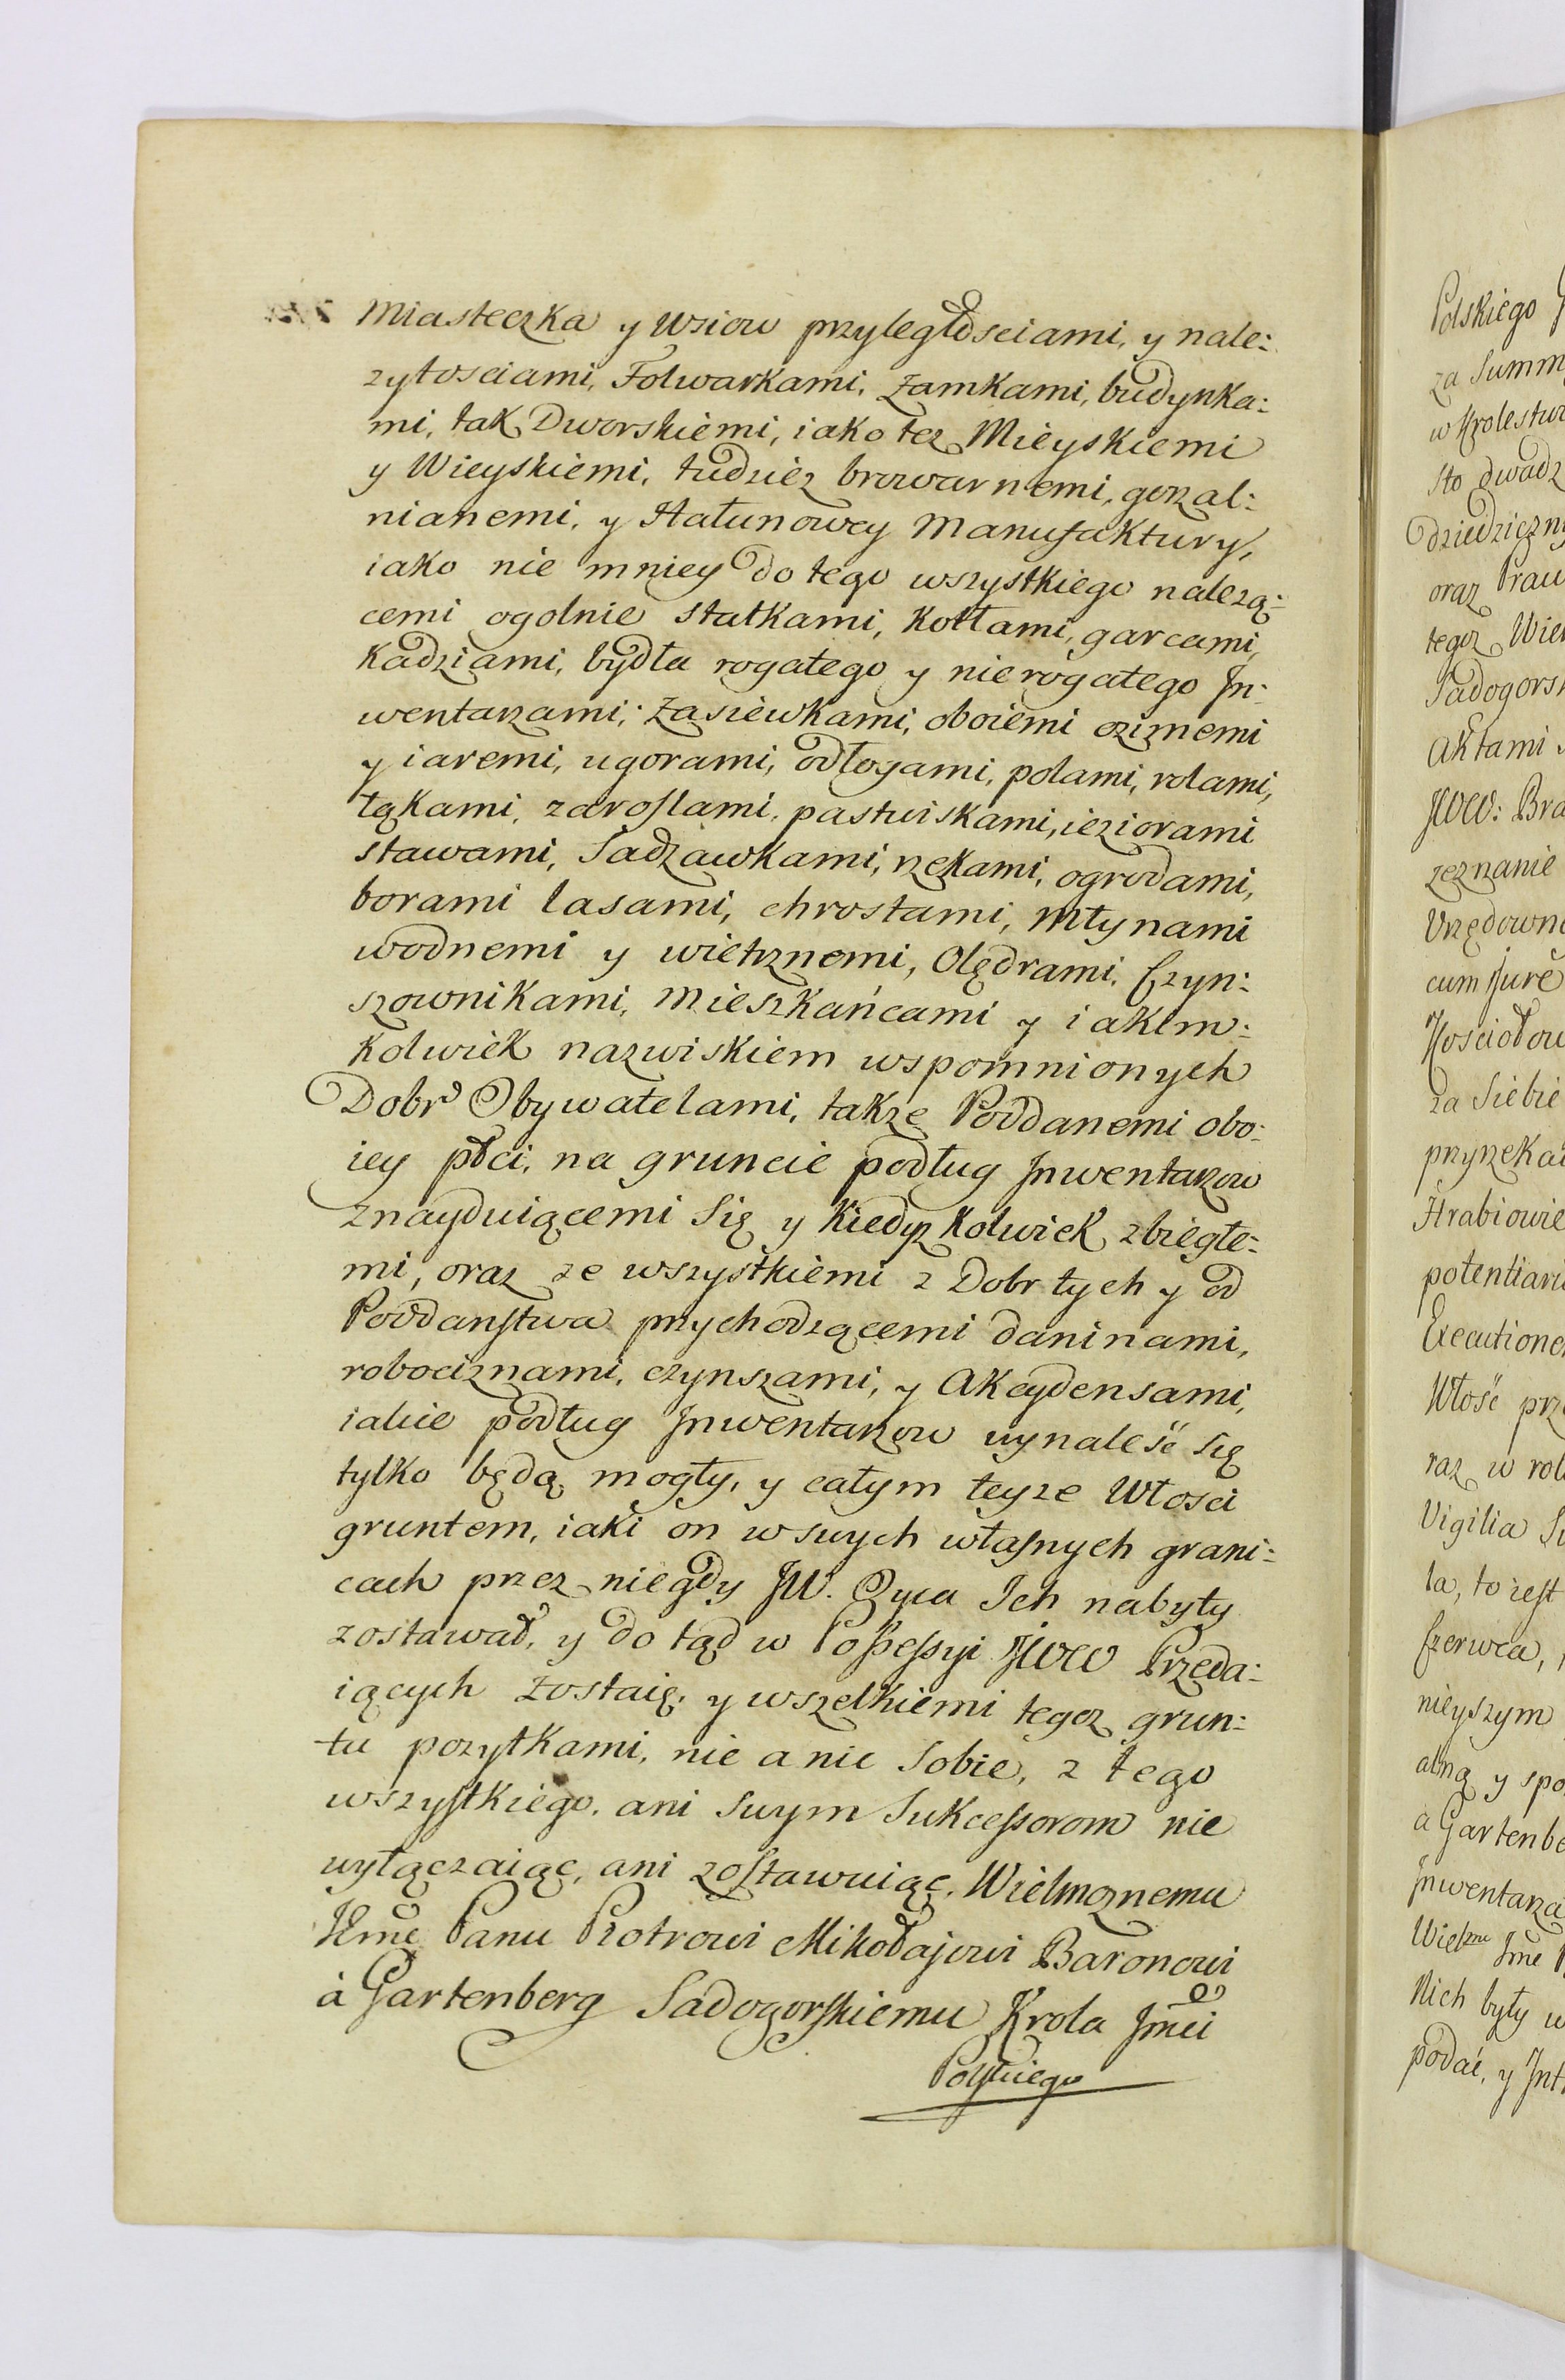 Miasteczka y Wsiow przyległosciami, y nale:
zytosciami, Folwarkami, Zamkami, budynka:
mi, tak Dworskiemi, iako tez Mieyskiemi
y Wieyskiemi, tudziez browarnemi, gorzal:
nianemi, y Hałunowey Manufaktury,
iako nie mniey do tego wszystkiego nalezą:
cemi ogolnie statkami, kotłami, garcami,
Kadziami, bydła rogatego y nierogatego In:
wentarzami; Zasiewkami, oboiemi ozimemi
y iaremi, ugorami, odłogami, polami, rolami,
łąkami, zaroslami, pastwiskami, ieziorami
stawami, Sadzawkami, rzekami, ogrodami,
borami lasami, chrostami, Młynami
wodnemi y wietrznemi, Olędrami, Czyn:
szownikami, Mieszkańcami y iakim:
Kolwiek nazwiskiem wspomnionych
Dobr Obywatelami, takze Poddanemi obo:
iey płci, na gruncie podług Inwentarzow
znayduiącemi Się y Kiedyz Kolwiek zbiegłe:
mi, oraz ze wszystkiemi z Dobr tych y od
Poddanstwa przychodzącemi daninami,
robociznami, czynszami, y Akcydensami,
iakie podług Inwentarzow wynaleść się
tylko będą mogły, y całym teyze Włosci
gruntem, iaki on w swych własnych grani:
cach przez niegdy JW. Oyca Ich nabyty
zostawał, y do tąd w Possessyi JWW Przeda:
iących zostaię, y wszelkiemi tegoz grun:
tu pozytkami, nie a nic Sobie, z tego
wszystkiego, ani Swym Sukcessorom nie
wyłączaiąc, ani zostawuiąc, Wielmoznemu
Jeme Panu Piotrowi Mikołajowi Baronowi
à Gartenberg Sadogorskiemu Krola Jmci
Polskiego
Polskiego
za Summ
w Krolestw
sto dwadz
dziedziczn
oraz Praw
tegoz Wie
Sadogors
Aktami
JWW: Bra
zeznanie
Urzędown
cum Jure
Kosciołow
za Siebie
przyrzeka
Hrabiowie
potentiari
Executione
Włość prz
raz w rol
Vigilia S
la, to iest
Czerwca,
nieyszym
alną y spo
a Gartenbe
Inwentarza
Wielzne Jme
Nich były w
podać, y Int